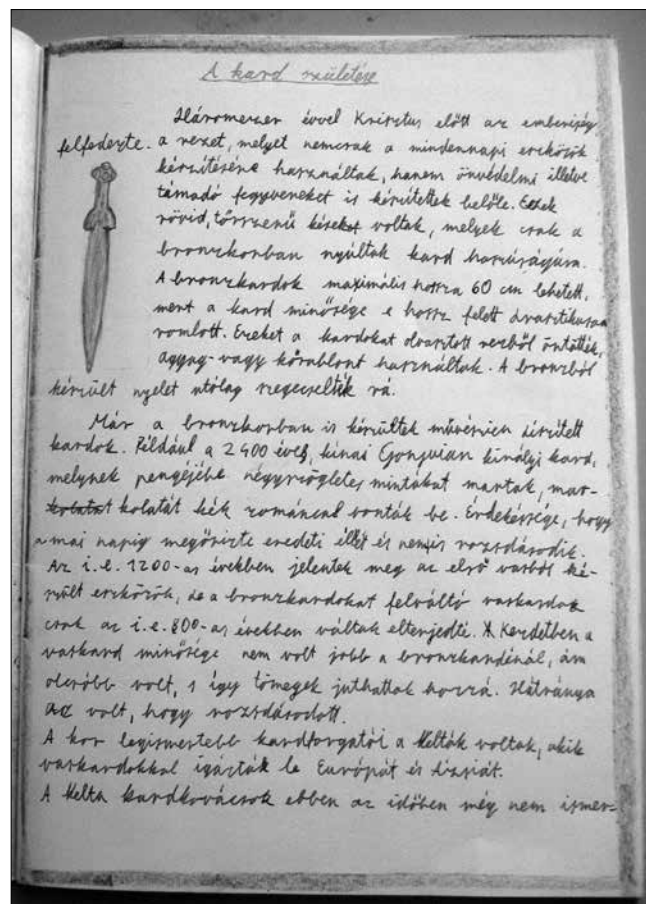 A kard születése
Háromezer évvel Krisztus előtt az emberiség
felfedezte a rezet, melyet nemcsak a mindennapi eszközök
készítésére használtak, hanem önvédelmi illetve
támadó fegyvereket is készítettek belőle. Ezek
rövid, tőrszerű kések voltak, melyek csak a
bronzkorban nyúltak kard hosszúságúra.
A bronzkardok maximális hossza 60 cm lehetett,
mert a kard minősége e hossz felett drasztikusan
romlott. Ezeket a kardokat olvasztott rézből öntötték,
agyag- vagy kősablont használtak. A bronzból
készült nyelet utólag szegecselték rá.
Már a bronzkorban is készültek művészien díszített
kardok. Például a 2400 éves, kínai királyi kard,
melynek pengéjébe négyszögletes mintákat martak, mar-
kolatát kék zománccal vonták be. Érdekessége, hogy
a mai napig megőrizte eredeti élét és nem is rozsdásodik.
Az i.e. 1200-as években jelentek meg az első vasból ké-
szült eszközök, de a bronzkardokat felváltó vaskardok
csak az i.e. 800-as években váltak elterjedtté. Kezdetben a
vaskard minősége nem volt jobb a bronzkardénál, ám
olcsóbb volt, s így tömegek juthattak hozzá. Hátránya
az volt, hogy rozsdásodott.
A kor legismertebb kardforgatói a kelták voltak, akik
vaskardokkal igázták le Európát és Ázsiát.
A kelta kardkovácsok ebben az időben még nem ismer-